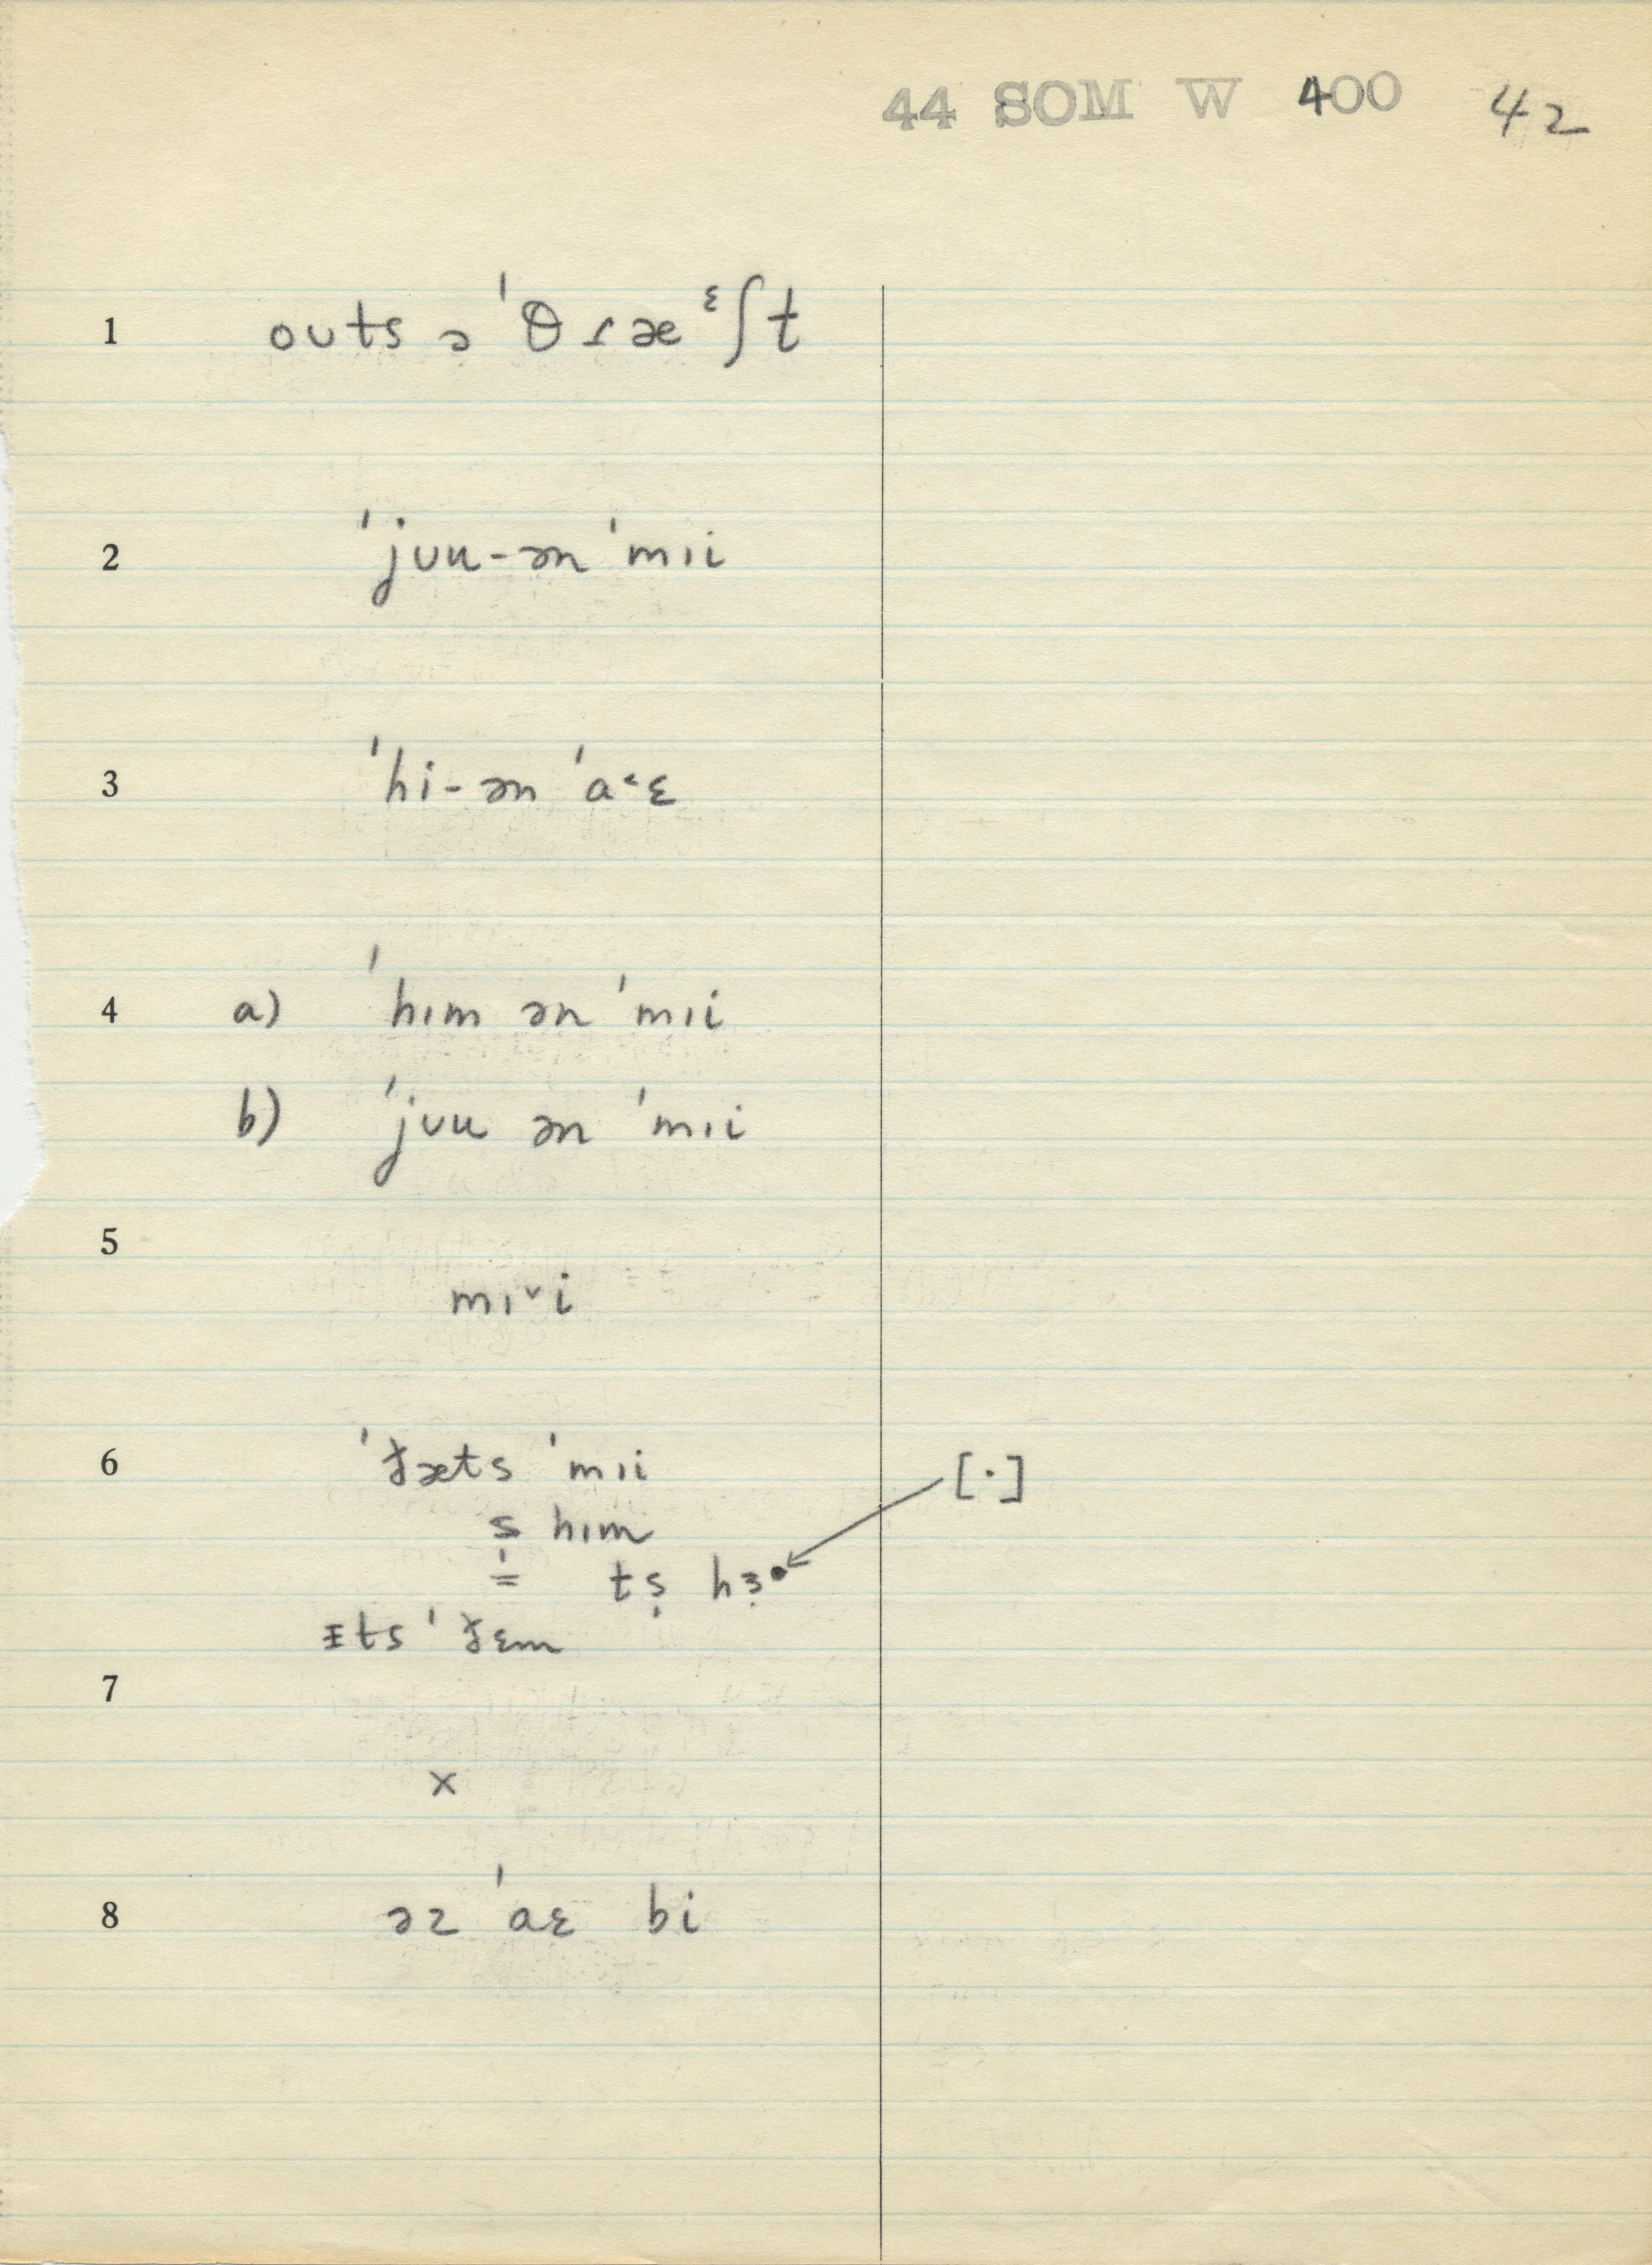 44 SOM W 400 42
1 oʊts ə ˈθɾæᵋʃt
2 ˈjʊu-ən ˈmɪi
3 ˈhi-ən ˈa˂ɛ
4 a) ˈhɪm ən ˈmɪi
b) ˈjʊu ən ˈmɪi
5
mɪˇi
6 ˈðæts ˈmɪi [·]
s̩ hɪm
= ts̩ hɜ̣•
ɪts ˈðɛm
7
x
8 əz ˈaɛ bi